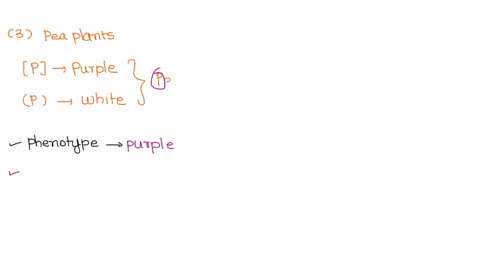 (3) Pea plants
[P] → Purple } Pp
(P) → White
✓ phenotype → purple
✓